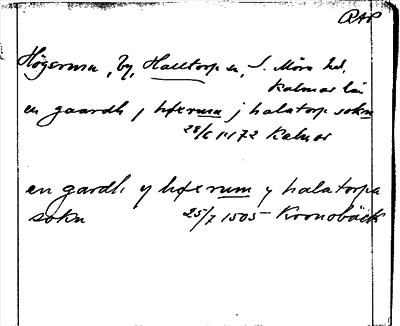 RAP
Högerum, by, Halltorp sn, S. Möre hd,
Kalmar län
en gaardh j høxerum j halatorp sokn
28/6 1472 Kalmar
en gardh y høxerum y halatorpa
sokn 25/7 1505 Kronobäck